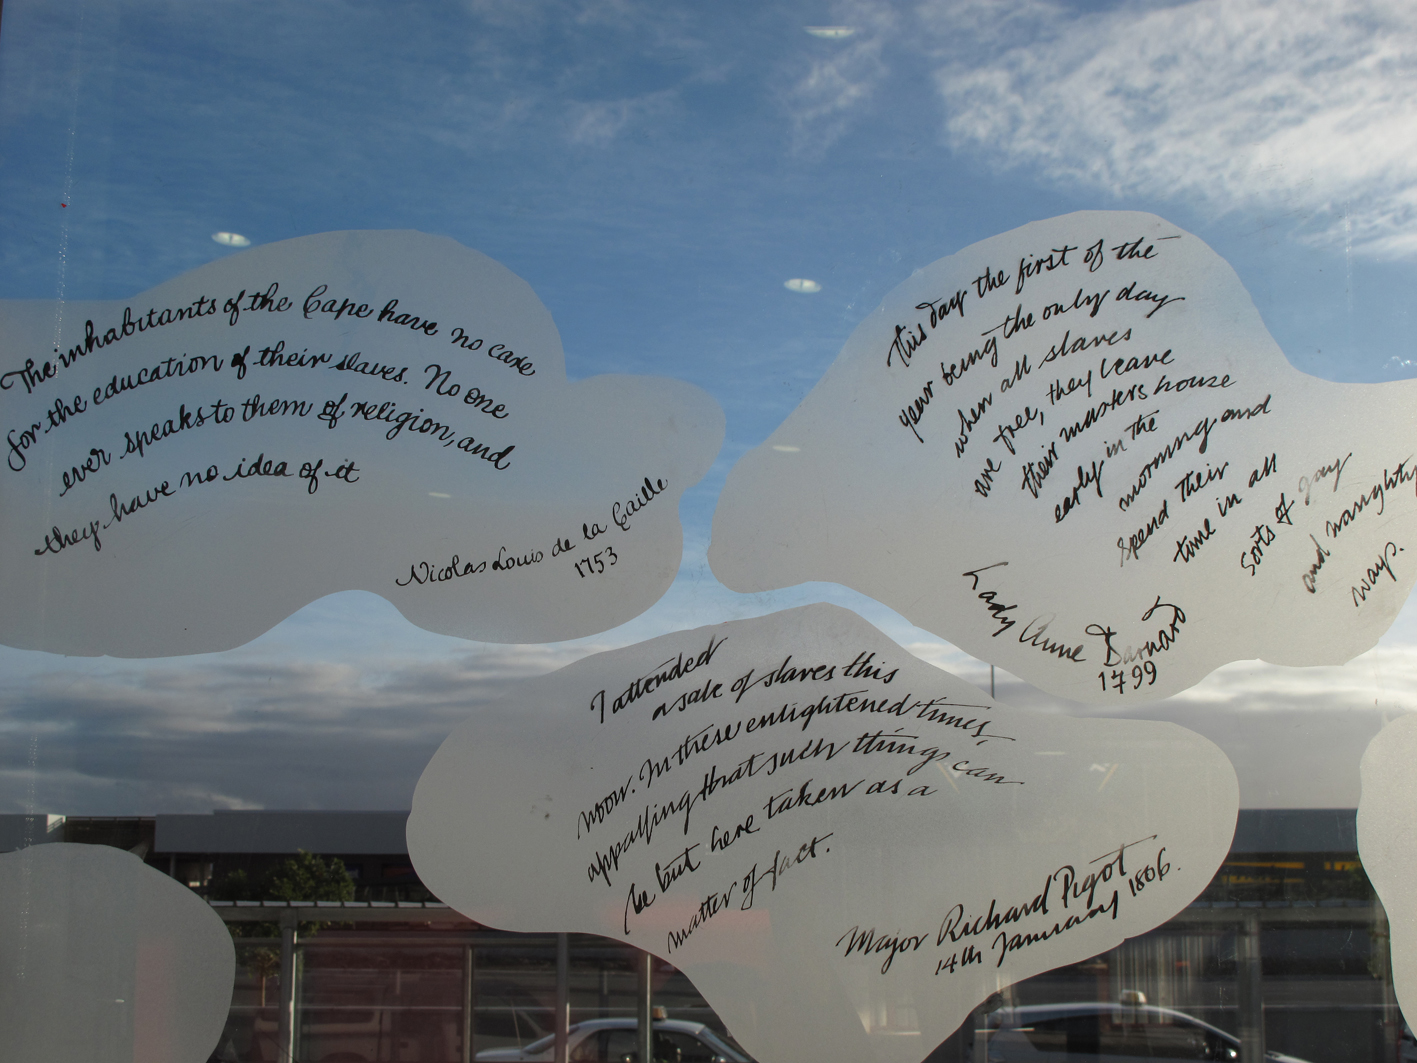 The inhabitants of the Cape have no care
for the education of their slaves. No one
ever speaks to them of religion, and
they have no idea of it
Nicolas Louis de la Caille
1753
This day the first of the
year being the only day
when all slaves
are free, they leave
their masters house
early in the
morning and
spend their
time in all
sorts of gay
and naughty
ways.
Lady Anne Barnard
1799
I attended
a sale of slaves this
noon. In these enlightened times,
appalling that such things can
be but here taken as a
matter of fact.
Major Richard Pigot
14th January 1806.